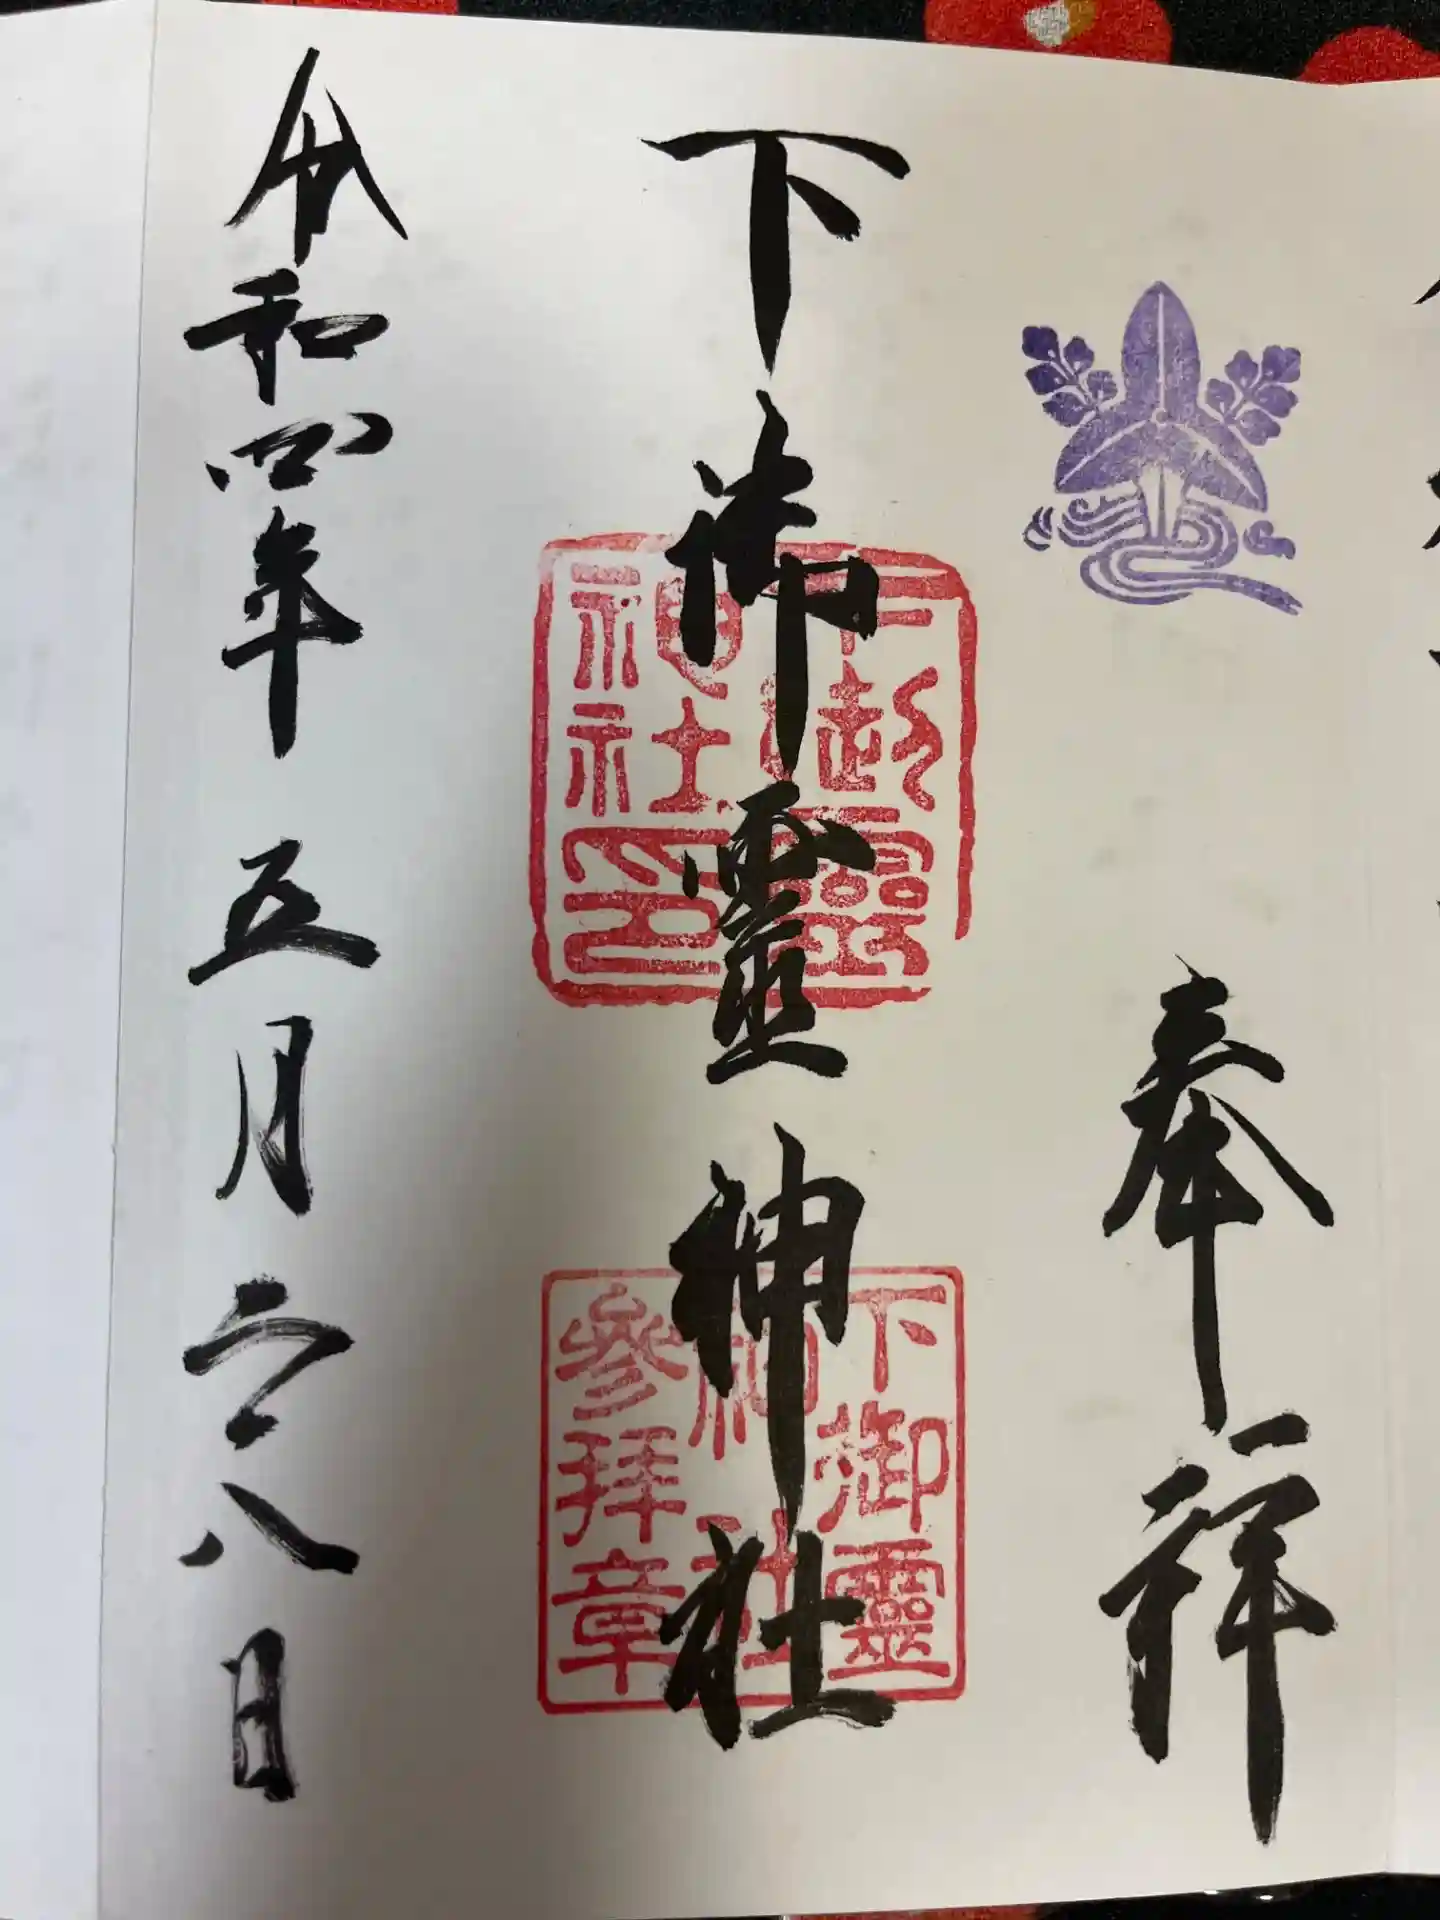 奉拝
下御靈神社
下御靈
神社印
下御靈
神社
參拜章
令和四年 五月二八日